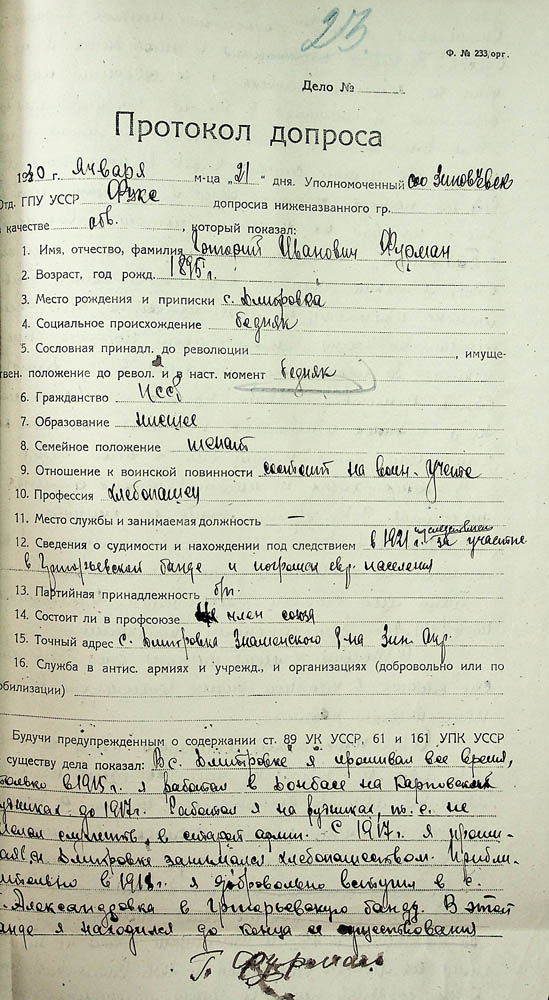 23.
Ф. № 233, орг.
Дело №
Протокол допроса
1930 г. Января м-ца „21" дня. Уполномоченный
Отд. ГПУ УССР Фукс допросив ниженазванного гр.
качестве обв., который показал:
1. Имя, отчество, фамилия Григорий Иванович Фурман
2. Возраст, год рожд. 1895 г.
3. Место рождения и приписки с. Дмитровка
4. Социальное происхождение бедняк
5. Сословная принадл. до революции , имуще-
твен. положение до револ. и в наст. момент бедняк
6. Гражданство УССР
7. Образование низшее
8. Семейное положение женат
9. Отношение к воинской повинности состоит на воин. учете
10. Профессия хлебопашец
11. Место службы и занимаемая должность —
12. Сведения о судимости и нахождении под следствием в 1921 г. за участие
в Григорьевской банде и погромах евр. населения
13. Партийная принадлежность б/п.
14. Состоит ли в профсоюзе член союза
15. Точный адрес с. Дмитровка Знаменского р-на Зин. окр.
16. Служба в антис. армиях и учрежд., и организациях (добровольно или по
обилизации)
Будучи предупрежденным о содержании ст. 89 УК УССР, 61 и 161 УПК УССР
существу дела показал: В с. Дмитровке я проживал все время,
только в 1915 г. я работал в Донбасе на Карповских
рудниках до 1917 г. Работал я на рудниках, т. е. не
желал служить в старой армии. С 1917 г. я прожи-
вал в Дмитровке занимался хлебопашеством. Прибли-
зительно в 1918 г. я добровольно вступил в с.
Александровка в Григорьевскую банду. В этой
банде я находился до конца ее существования
Г. Фурман